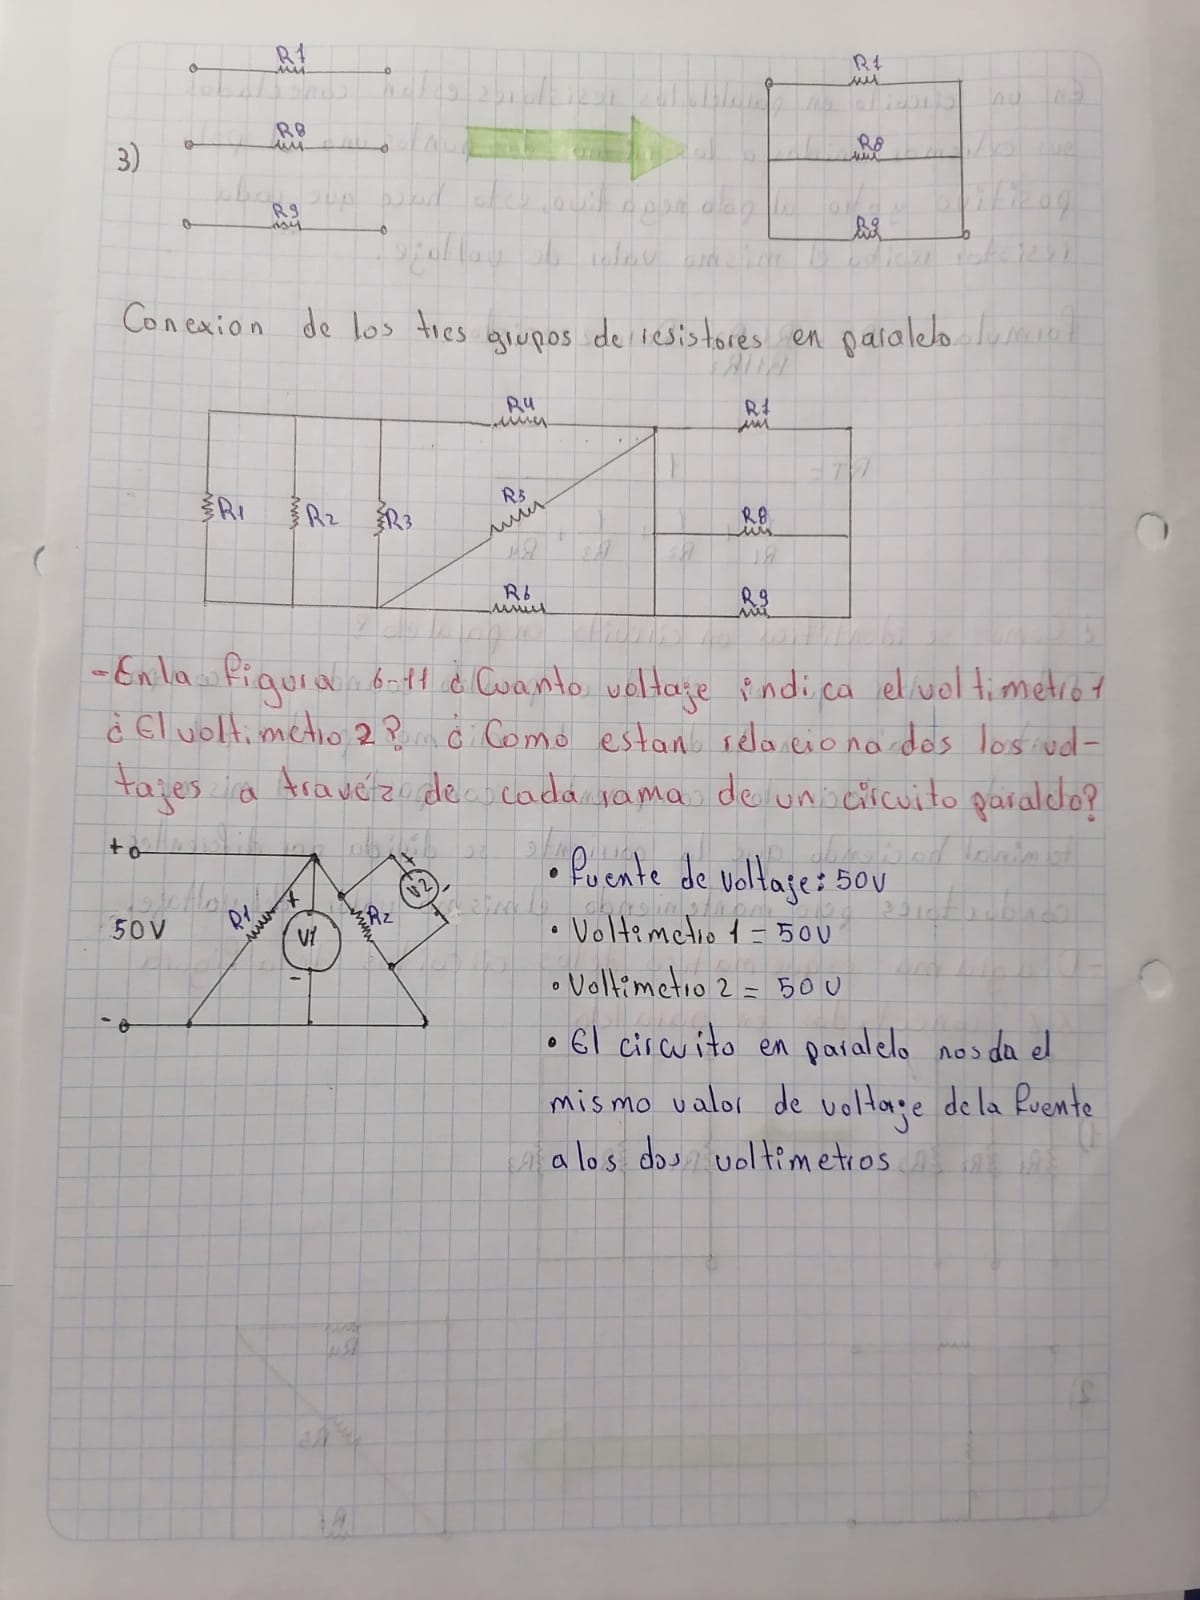 R1
R8
3)
R9
R1
R8
R9
Conexion de los tres grupos de resistores en paralelo
R4
R1
R1
R2
R3
R5
R8
R6
R9
-En la figura 6-11 ¿Cuanto voltaje indica el voltimetro 1
¿El voltimetro 2? ¿Como estan relacionados los vol-
tajes a travéz de cada rama de un circuito paralelo?
+
50V
R1
+
V1
-
R2
+
V2
-
-
• fuente de voltaje: 50V
• Voltimetro 1 = 50V
• Voltimetro 2 = 50V
• El circuito en paralelo nos da el
mismo valor de voltaje de la fuente
a los dos voltimetros